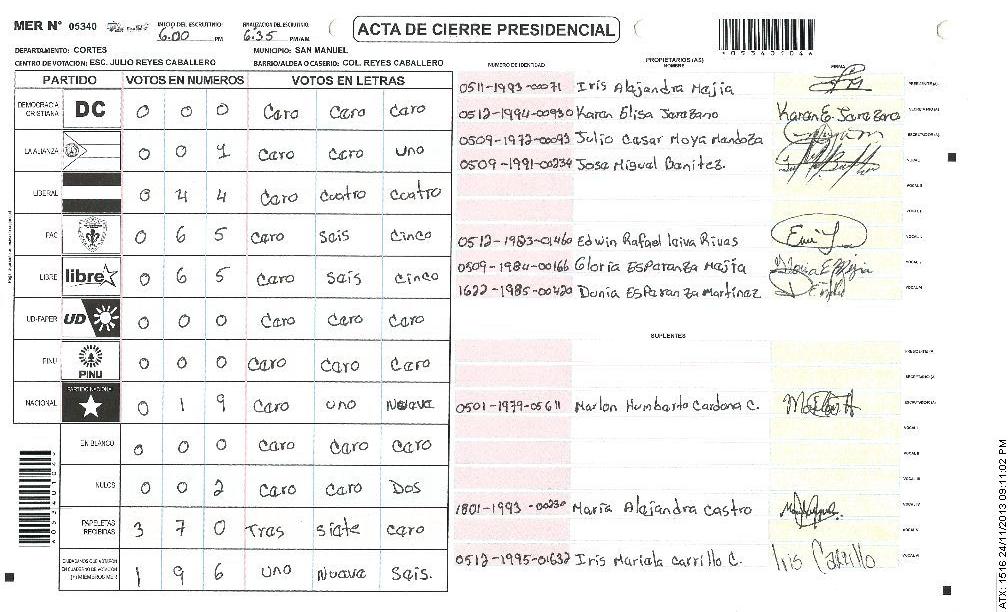 MER N° 05340 INICIO DEL ESCRUTINIO: 6:00 PM FINALIZACION DEL ESCRUTINIO: 6:35 PM/AM ACTA DE CIERRE PRESIDENCIAL
DEPARTAMENTO: CORTES MUNICIPIO: SAN MANUEL
CENTRO DE VOTACION: ESC. JULIO REYES CABALLERO BARRIO/ALDEA O CASERIO: COL. REYES CABALLERO
PARTIDO VOTOS EN NUMEROS VOTOS EN LETRAS
DEMOCRACIA CRISTIANA DC 0 0 0 Caro Caro Caro
LA ALIANZA 0 0 1 Caro Caro uno
LIBERAL 0 4 4 Caro Cuatro Cuatro
PAC 0 6 5 Caro Sais Cinco
LIBRE libre 0 6 5 Caro Sais Cinco
UD-FAPER UD 0 0 0 Caro Caro Caro
PINU PINU 0 0 0 Caro Caro Caro
NACIONAL PARTIDO NACIONAL 0 1 9 Caro uno Nuava
EN BLANCO 0 0 0 Caro Caro Caro
NULOS 0 0 2 Caro Caro Dos
PAPELETAS RECIBIDAS 3 7 0 Tras siata caro
CIUDADANOS QUE VOTARON EN CUADERNO DE VOTACION (+) MIEMBROS MER 1 9 6 uno Nuava Sais.
PROPIETARIOS (AS)
NUMERO DE IDENTIDAD NOMBRE FIRMA
0511-1993-00071 Iris Alajandra Majia PRESIDENTE(A)
0512-1994-00930 Karan Elisa Jarazano Karan E. Jarazano SECRETARIO(A)
0509-1972-00093 Julio Casar Moya Mandoza ESCRUTADOR(A)
0509-1991-00234 Josa Miguel Banitaz. VOCAL I
VOCAL II
VOCAL III
0512-1983-01460 Edwin Rafael laiva Rivas
0509-1984-00166 Gloria ESParanza Majia
1622-1985-00420 Dunia ESParanza Martinaz
SUPLENTES
PRESIDENTE(A)
SECRETARIO(A)
0501-1979-05611 Marlon Humbarto Cardona C. ESCRUTADOR(A)
VOCAL I
VOCAL II
VOCAL III
1801-1993-00230 Maria Alajandra Castro
0512-1995-01632 Iris Mariala Carrillo C. Iris Carrillo
ATX: 1516 24/11/2013 09:11:02 PM